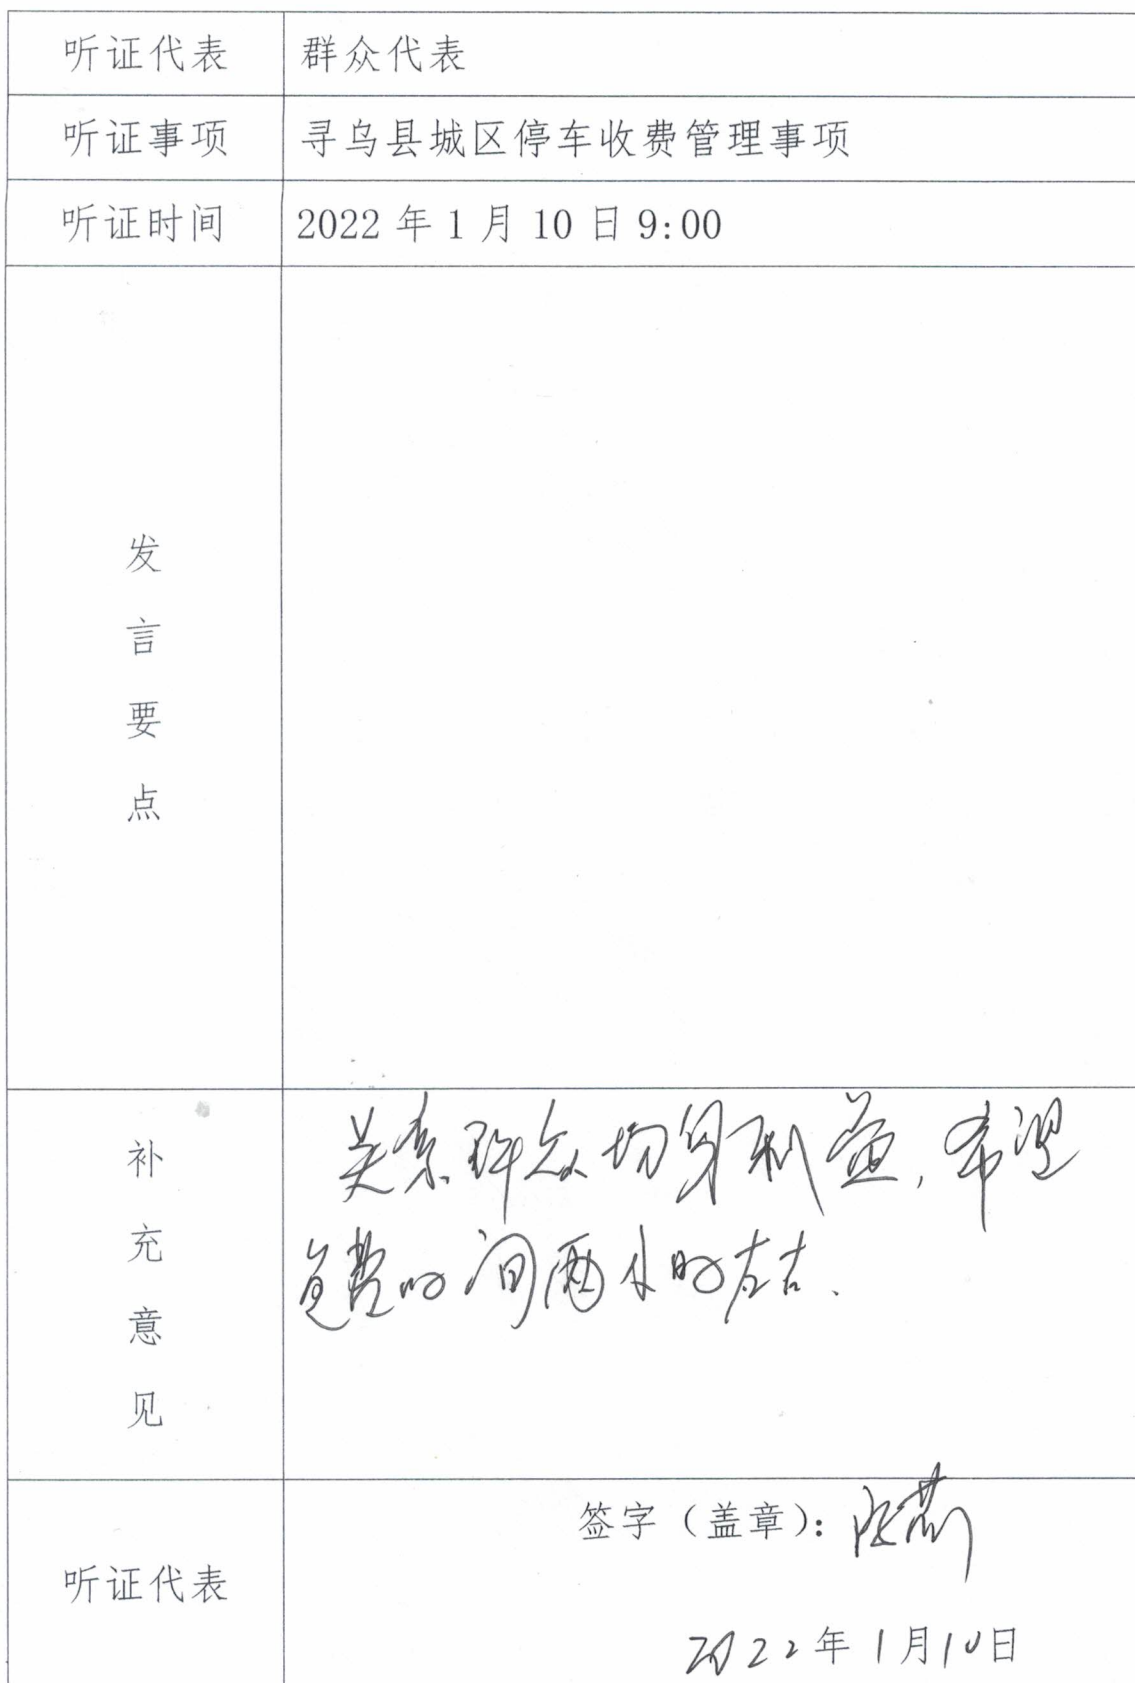 听证代表 群众代表
听证事项 寻乌县城区停车收费管理事项
听证时间 2022年1月10日9:00
发
言
要
点
补
充
意
见
关系群众切身利益,希望
免费时间两小时左右.
签字(盖章):
听证代表
2022年1月10日